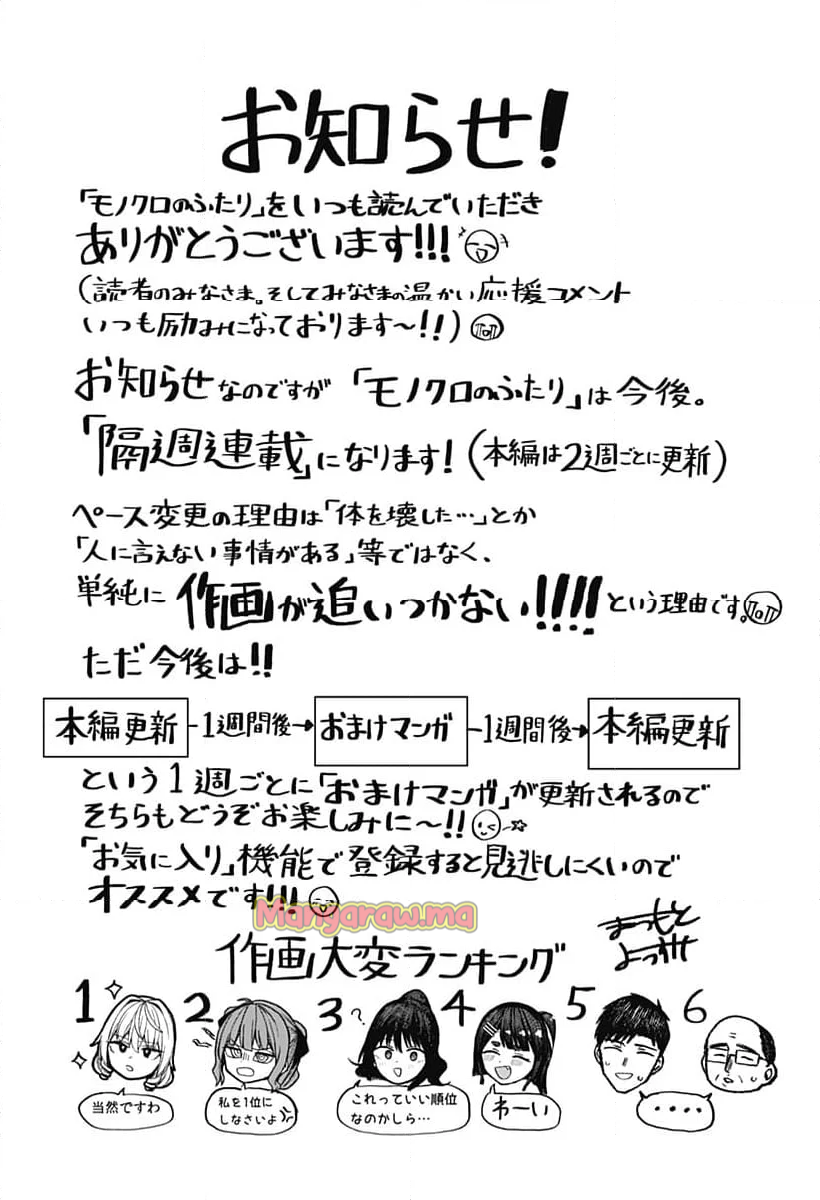 お知らせ!
「モノクロのふたり」をいつも読んでいただき
ありがとうございます!!!
(読者のみなさま。そしてみなさまの温かい応援コメント
いつも励みになっております〜!!)
お知らせなのですが「モノクロのふたり」は今後。
「隔週連載」になります!(本編は2週ごとに更新)
ペース変更の理由は「体を壊した…」とか
「人に言えない事情がある」等ではなく、
単純に作画が追いつかない!!!!という理由です。
ただ今後は!!
本編更新 -1週間後→ おまけマンガ -1週間後→ 本編更新
という1週ごとに「おまけマンガ」が更新されるので
そちらもどうぞお楽しみに〜!!
「お気に入り」機能で登録すると見逃しにくいので
オススメです!!!
Mangaraw.ma
まつもと
ようすけ
作画大変ランキング
1 2 3 ? 4 5 6
当然ですわ
私を1位に
しなさいよ
これっていい順位
なのかしら…
わーい
・・・・